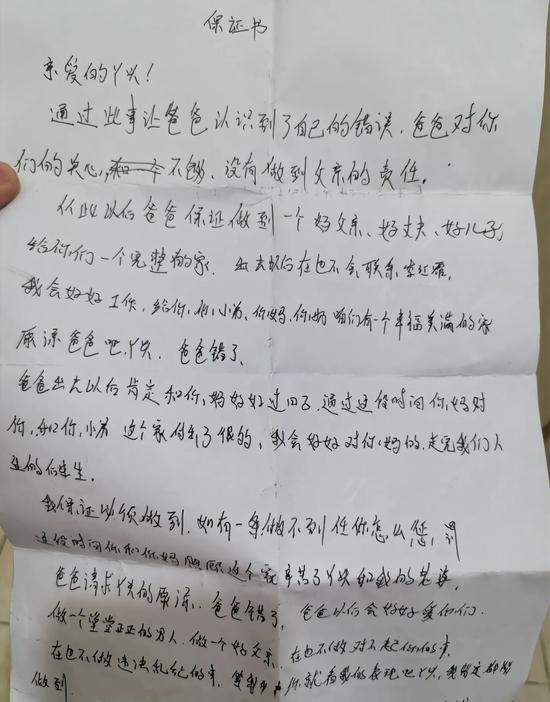 保证书
亲爱的丫头!
通过此事让爸爸认识到了自己的错误,爸爸对你
们的关心,不够、没有做到父亲的责任。
从此以后爸爸保证做到一个好父亲、好丈夫、好儿子,
给你们一个完整的家. 出去以后在也不会联系
我会好好工作,给你,和小弟、你妈、咱们有一个幸福美满的家
原谅爸爸吧丫头. 爸爸错了.
爸爸出去以后肯定和你妈好好过日子.通过这段时间你妈对
你,和你小弟 这个家付出了很多,我会好好对你妈的,走完我们人
生的
我保证必须做到.如有一条做不到任你怎么惩罚
这段时间你和你妈照顾这个家辛苦了丫头
爸爸请求丫头的原谅..爸爸错了, 爸爸以后会好好爱你们.
做一个堂堂正正的男人.做一个好父亲. 在也不做对不起你们的事
在也不做违法乱纪的事. 就看我的表现吧丫头,我肯定
做到.